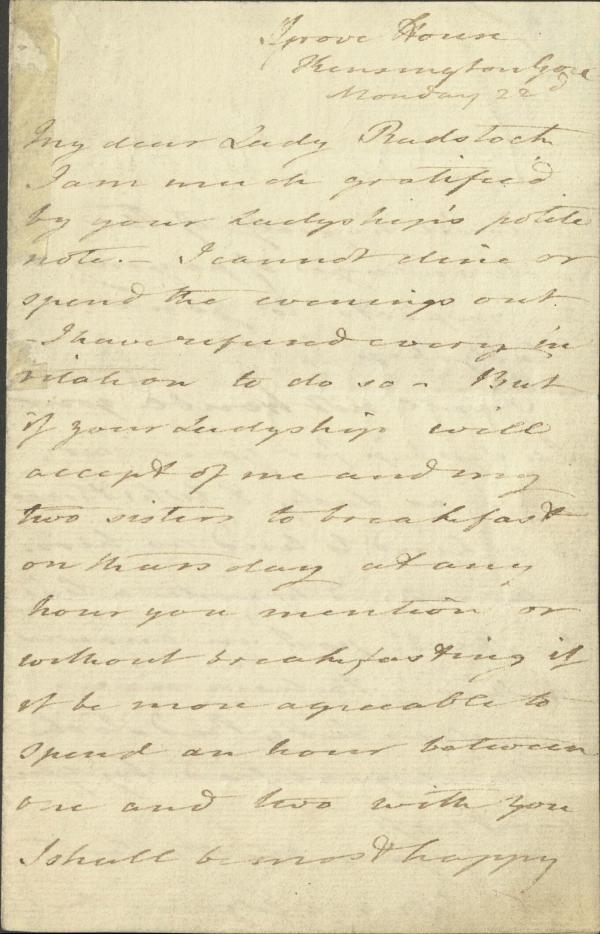 Grove House
Kensington Gore
Monday 22d
My dear Lady Radstock
I am much gratified
by your Ladyship's polite
note. – I cannot dine or
spend the evenings out
– I have refused every in
vitation to do so – But
if your Ladyship will
accept of me and my
two sisters to breakfast
on thursday at any
hour you mention or
without breakfasting if
it be more agreeable to
spend an hour between
one and two with you
I shall be most happy